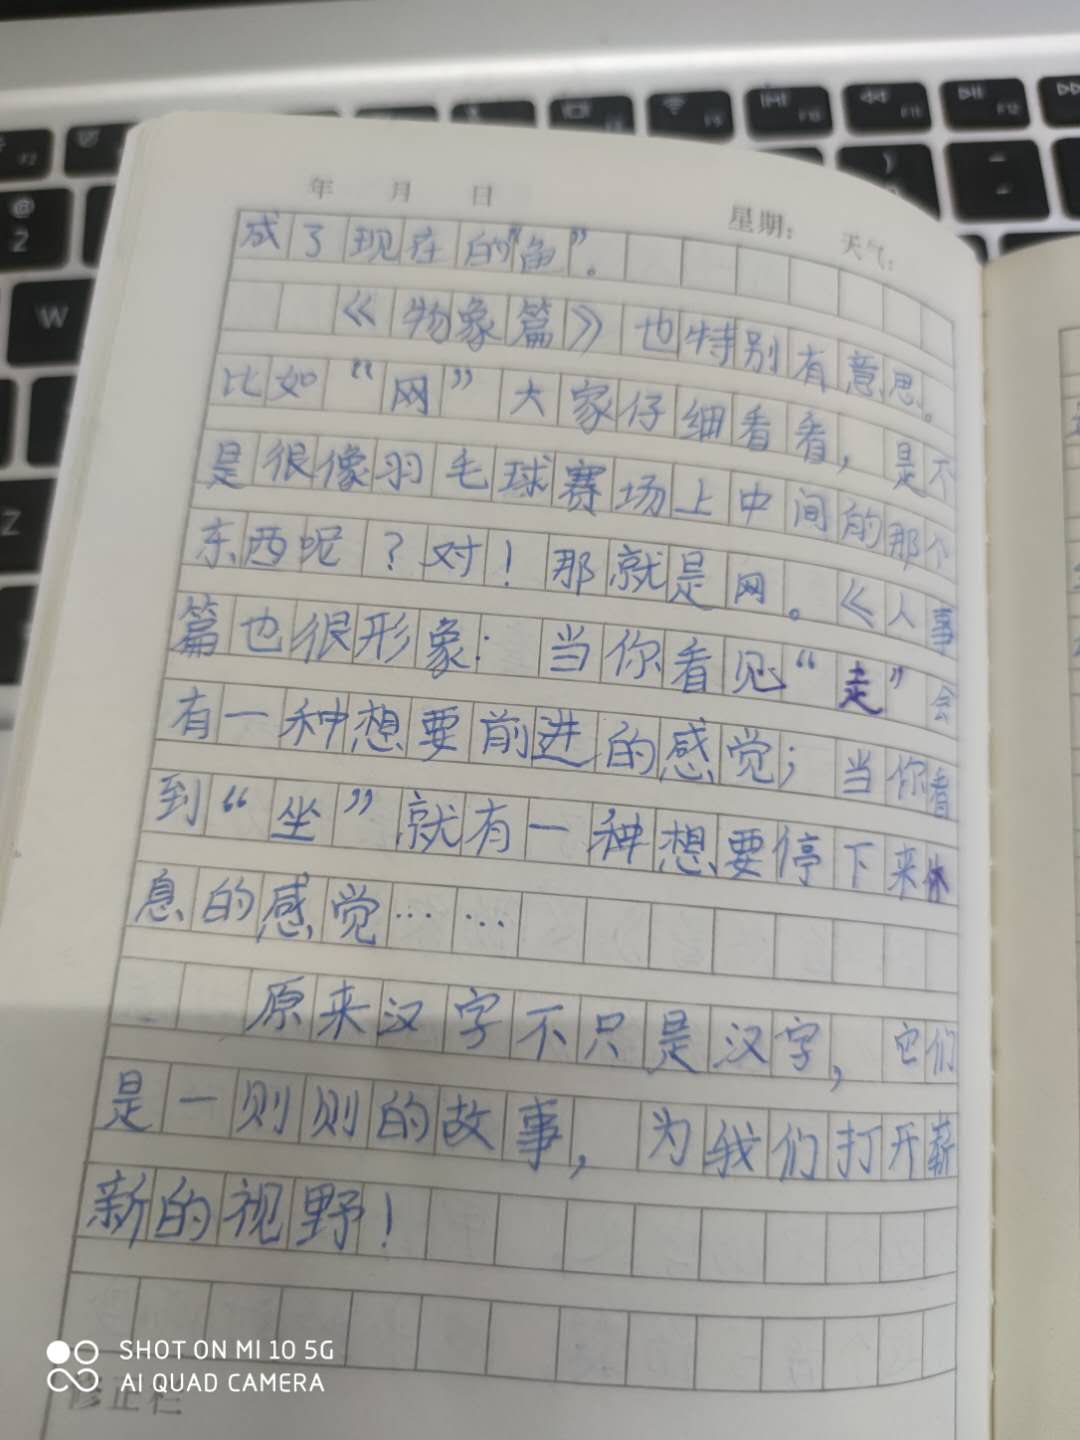 年 月 日 星期： 天气：
成了现在的"鱼"。
《物象篇》也特别有意思。
比如"网"大家仔细看看，是不
是很像羽毛球赛场上中间的那个
东西呢？对！那就是网。《人事
篇也很形象：当你看见"走"会
有一种想要前进的感觉；当你看
到"坐"就有一种想要停下来休
息的感觉……
原来汉字不只是汉字，它们
是一则则的故事，为我们打开崭
新的视野！
修正栏
SHOT ON MI 10 5G
AI QUAD CAMERA
@
2
W
Z
F2
F9
F10
F11
F12